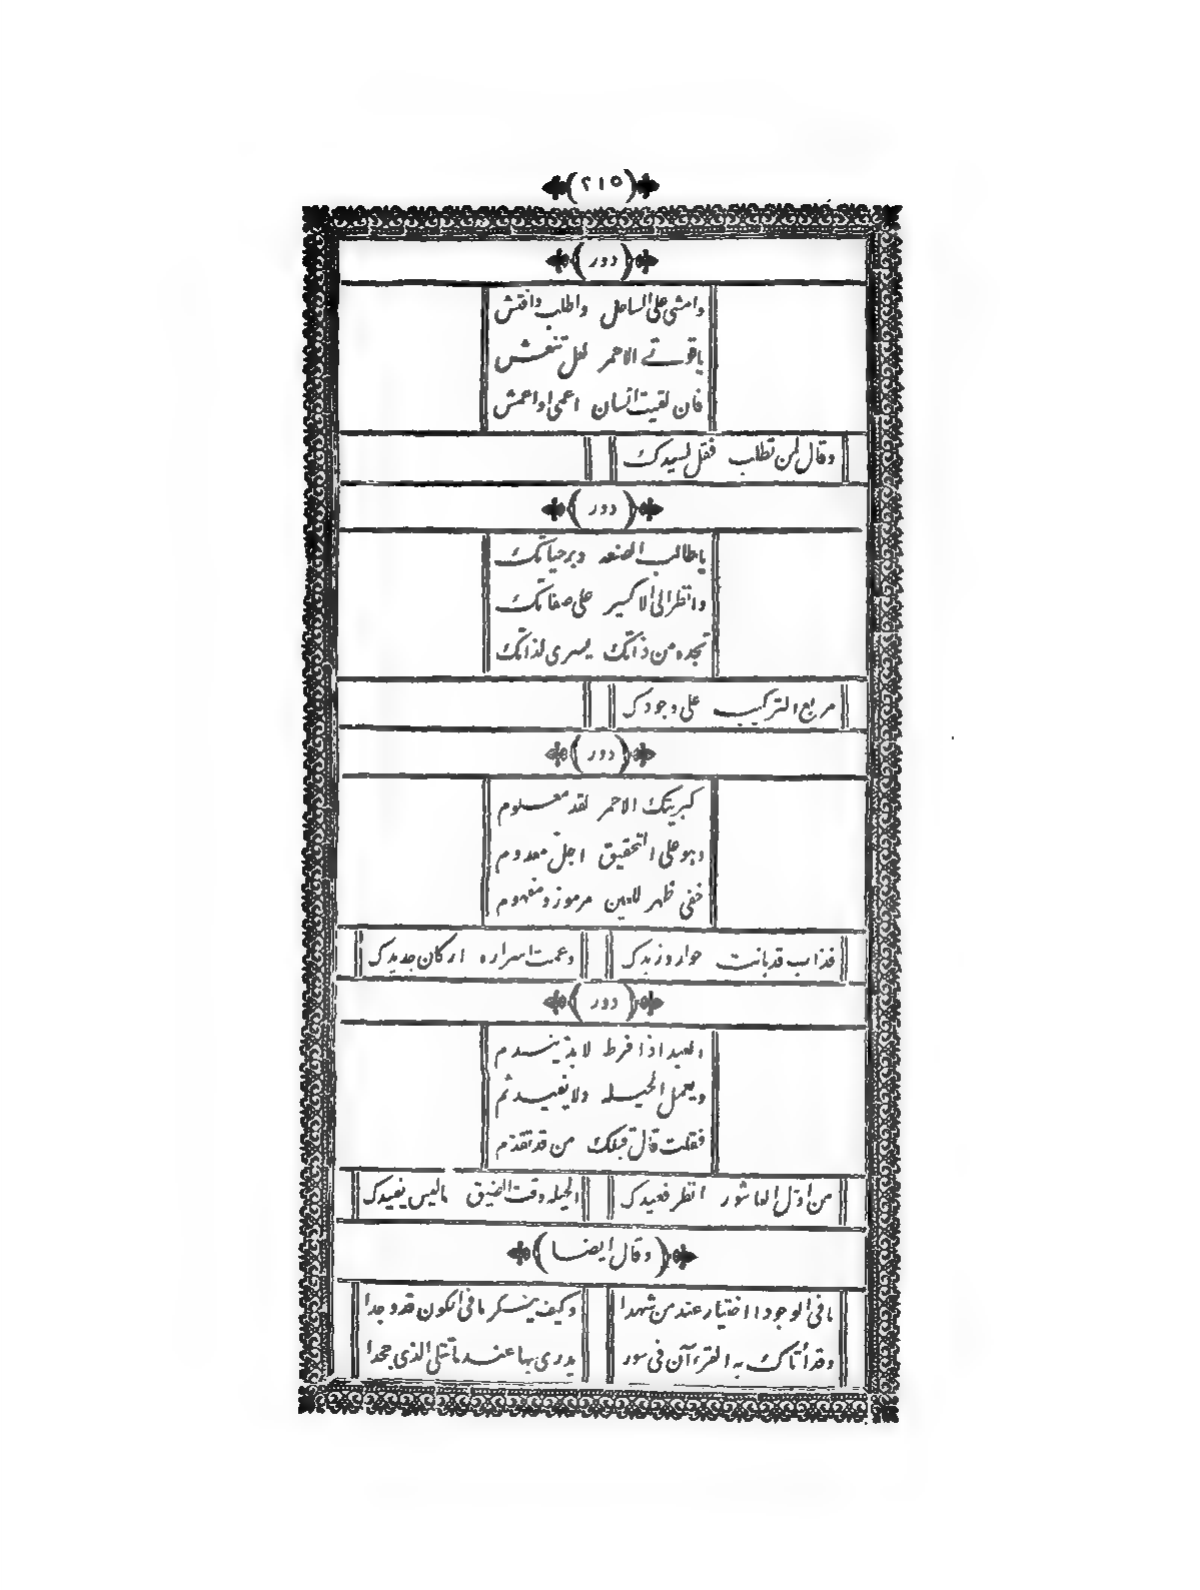 (٢١٥)
(دور)
وامشى على الساحل واطلب وافتش
ياقوتے الاحمر لعل تنعش
فان لقيت انسان اعمى او اعمش
وقال لمن تطلب فقل لسيدك
(دور)
يا طالب الصنعه دبر حياتك
وانظر الى الاكسير على صفاتك
تجده من ذاتك يسرى لذاتك
مربع التركيب على وجودك
(دور)
كبريتك الاحمر لقد معلوم
وهو على التحقيق اجل معدوم
خفى ظهر للعين مرموز ومفهوم
فذاب قد بانت حوار وزبدك وعمت اسراره اركان جديدك
(دور)
والعبد اذا فرط لا بد يندم
ويعمل الحيله ولا يفيد ثم
فقلت قال قبلك من قد تقدم
من اول العاشور انظر فعيدك الحيله وقت الضيق ما ليس يفيدك
(وقال ايضا)
ما فى الوجود اختيار عند من شهدا وكيف ينكر ما فى الكون قد وجدا
وقد أتاك به القرءآن فى سور يدرى بها عند ما تتلى الذى جحدا